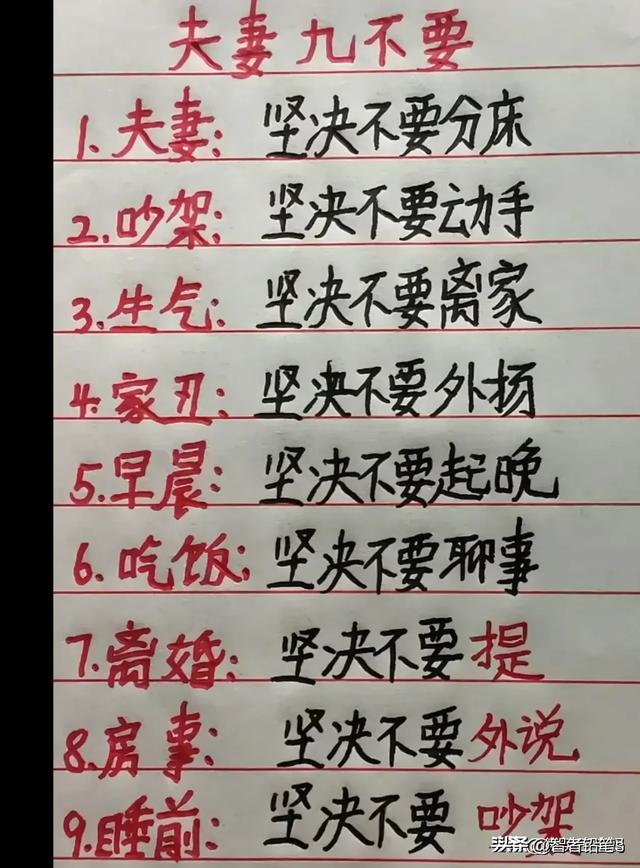 夫妻九不要
1.夫妻:坚决不要分床
2.吵架:坚决不要动手
3.生气:坚决不要离家
4.家丑:坚决不要外扬
5.早晨:坚决不要起晚
6.吃饭:坚决不要聊事
7.离婚:坚决不要提
8.房事:坚决不要外说
9.睡前:坚决不要吵架
头条@智者铅笔